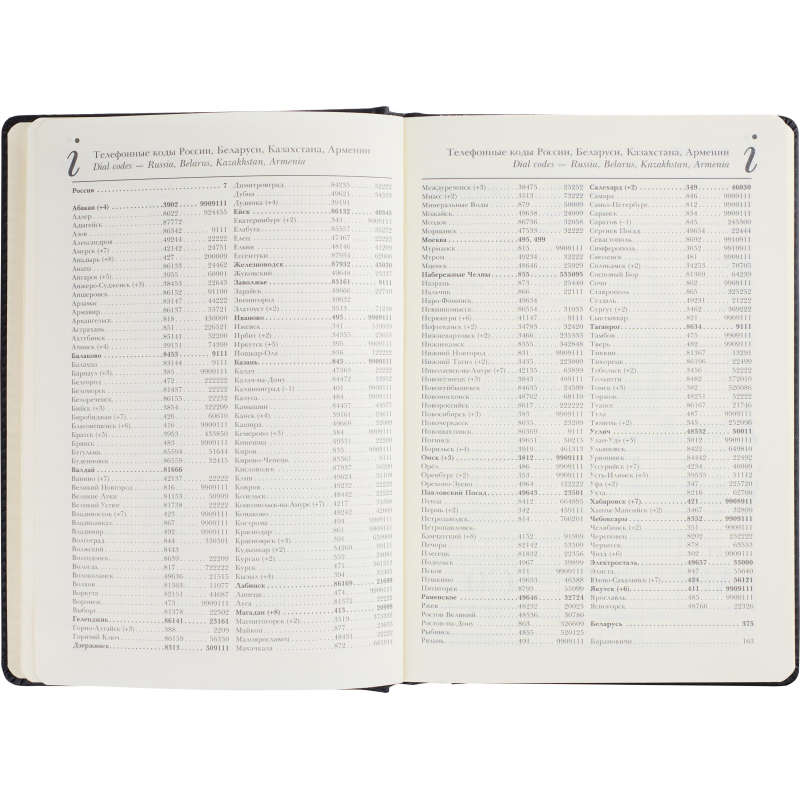 i
Телефонные коды России, Беларуси, Казахстана, Армении
Dial codes — Russia, Belarus, Kazakhstan, Armenia
Россия 7
Абакан (+4) 3902 9909111
Адлер 8622 924455
Адыгейск 87772
Азов 86342 9111
Александров 49244 22222
Амурск (+7) 42142 24751
Анадырь (+8) 427 200009
Анапа 86133 24462
Ангарск (+5) 3955 60901
Анжеро-Судженск (+3) 38453 22645
Апшеронск 86152 91100
Арзамас 83147 44222
Армавир 86137 53721
Архангельск 818 430000
Астрахань 851 226521
Ахтубинск 85141 52200
Ачинск (+4) 39151 74399
Балаково 8453 9111
Балахна 83144 9111
Барнаул (+3) 385 9909111
Белгород 472 222222
Беломорск 81437 22222
Белореченск 86155 22232
Бийск (+3) 3854 322209
Биробиджан (+7) 426 60610
Благовещенск (+6) 416 9909111
Братск (+5) 3953 453850
Брянск 483 9909111
Бугульма 85594 51644
Буденновск 86559 32415
Валдай 81666
Ванино (+7) 42137 22222
Великий Новгород 816 9909111
Великие Луки 81153 50909
Великий Устюг 81738 22222
Владивосток (+7) 423 9909111
Владикавказ 867 9909111
Владимир 492 9909111
Волгоград 844 330301
Волжский 8443
Вологодск 8639 22209
Вологда 817 722222
Волоколамск 49636 21515
Волхов 81363 11077
Воркута 82151 44687
Воронеж 473 9909111
Выборг 81378 22502
Геленджик 86141 23161
Горно-Алтайск (+3) 388 2209
Горячий Ключ 86159 56330
Дзержинск 8313 309111
Димитровград 84235 52222
Дубна 49621 34535
Дудинка (+4) 39191
Ейск 86132 40345
Екатеринбург (+2) 343 9909111
Елабуга 85557 35272
Елец 47467 22222
Ельня 48146 41209
Ессентуки 87934 62000
Железноводск 87932 45030
Жуковский 49648 23337
Заволжье 83161 9111
Зарайск 49666 22710
Звенигород 49632
Златоуст (+2) 3513 71218
Иваново 493 9909111
Ижевск 341 510039
Ирбит (+2) 34355 22222
Иркутск (+5) 395 9909111
Йошкар-Ола 836 122222
Казань 843 9909111
Калач 47363 22222
Калач-на-Дону 84472 33052
Калининград (–1) 401 9909111
Калуга 484 9909111
Камышин 84457 44577
Канск (+4) 39161 29611
Кашира 49669 52000
Кемерово (+3) 384 9909111
Кинешма 49331 22209
Киров 833 9909111
Кирово-Чепецк 83361 9111
Кисловодск 87937 50299
Клин 49624 31221
Ковров 49232 22222
Козельск 48442 22222
Комсомольск-на-Амуре (+7) 4217
Конаково 48242 42009
Кострома 494 9909111
Краснодар 861 9909111
Красноярск (+4) 391
Кудымкар (+2) 34260 99111
Курган (+2) 352 9909111
Курск 471
Кызыл (+4) 394 52300
Лабинск 86169 21699
Липецк 474 9909111
Луга 81372 22222
Магадан (+8) 413 20999
Магнитогорск (+2) 3519 373333
Майкоп 877 23655
Малоярославец 48431 22222
Махачкала 872 681913
Телефонные коды России, Беларуси, Казахстана, Армении
Dial codes — Russia, Belarus, Kazakhstan, Armenia
i
Междуреченск (+3) 38475 25252
Миасс (+2) 3513 73222
Минеральные Воды 879 50909
Можайск 49638 24009
Моздок 86736 32958
Моршанск 47533 22222
Москва 495, 499
Мурманск 815 9909111
Муром 49234 32222
Мценск 48646 25929
Набережные Челны 855 535095
Назрань 873 25440
Нальчик 866 22111
Наро-Фоминск 49634
Невинномысск 86554 31933
Нерюнгри (+6) 41147 9111
Нефтекамск (+2) 34783 32420
Нижневартовск (+2) 3466 235333
Нижнекамск 8555 342848
Нижний Новгород 831 9909111
Нижний Тагил (+2) 3435 223009
Николаевск-на-Амуре (+7) 42135 63899
Новокузнецк (+3) 3843 409111
Новокуйбышевск 84635 24599
Новомосковск 48762 68110
Новороссийск 8617 222222
Новосибирск (+3) 383 9909111
Новочеркасск 8635 23209
Новошахтинск 86369 9111
Ногинск 49651 50215
Норильск (+4) 3919 461313
Омск (+3) 3812 9909111
Орёл 486 9909111
Оренбург (+2) 353 9909111
Орехово-Зуево 4964 122222
Павловский Посад 49643 23501
Пенза 8412 664895
Пермь (+2) 342 459111
Петрозаводск 814 766201
Петропавловск-
Камчатский (+8) 4152 91909
Печора 82142 53509
Плесецк 81832 22356
Подольск 4967 39899
Псков 811 9909111
Пушкино 49653 46388
Пятигорск 8793 55999
Раменское 49646 32724
Ржев 48232 20023
Ростов Великий 48536 30780
Ростов-на-Дону 863 326609
Рыбинск 4855 520125
Рязань 491 9909111
Салехард (+2) 349 46030
Самара 846 9909111
Санкт-Петербург 812 9909111
Саранск 834 9909111
Саратов (–1) 845 245300
Сергиев Посад 49654 22444
Севастополь 8692 9910911
Симферополь 3652 9910911
Смоленск 481 9909111
Соликамск (+2) 34253 70705
Сосновый Бор 81369 64239
Сочи 862 9909111
Ставрополь 865 325252
Суздаль 49231 21222
Сургут (+2) 3462 369222
Сыктывкар 821 9909111
Таганрог 8634 9111
Тамбов 475 9909111
Тверь 482 9909111
Тихвин 81367 13291
Тихорецк 86196 22499
Тобольск (+2) 3456 52222
Тольятти 8482 372010
Томск (+3) 382 520086
Торжок 48251 52222
Туапсе 86167 21746
Тула 487 9909111
Тюмень (+2) 345 252096
Углич 48532 50011
Улан-Удэ (+5) 3012 9909111
Ульяновск 8422 649810
Урюпинск 84442 22492
Уссурийск (+7) 4234 40009
Усть-Илимск (+5) 39535 51112
Уфа (+2) 347 225720
Ухта 8216 62760
Хабаровск (+7) 421 9908911
Ханты-Мансийск (+2) 3467 32899
Чебоксары 8352 9909111
Челябинск (+2) 351 9909111
Череповец 8202 252222
Черкесск 878 63553
Чита (+6) 302 9909111
Электросталь 49657 33000
Элиста 847 55649
Южно-Сахалинск (+7) 424 56121
Якутск (+6) 411 9909111
Ярославль 485 9909111
Ясногорск 48766 22326
Беларусь 375
Барановичи 163